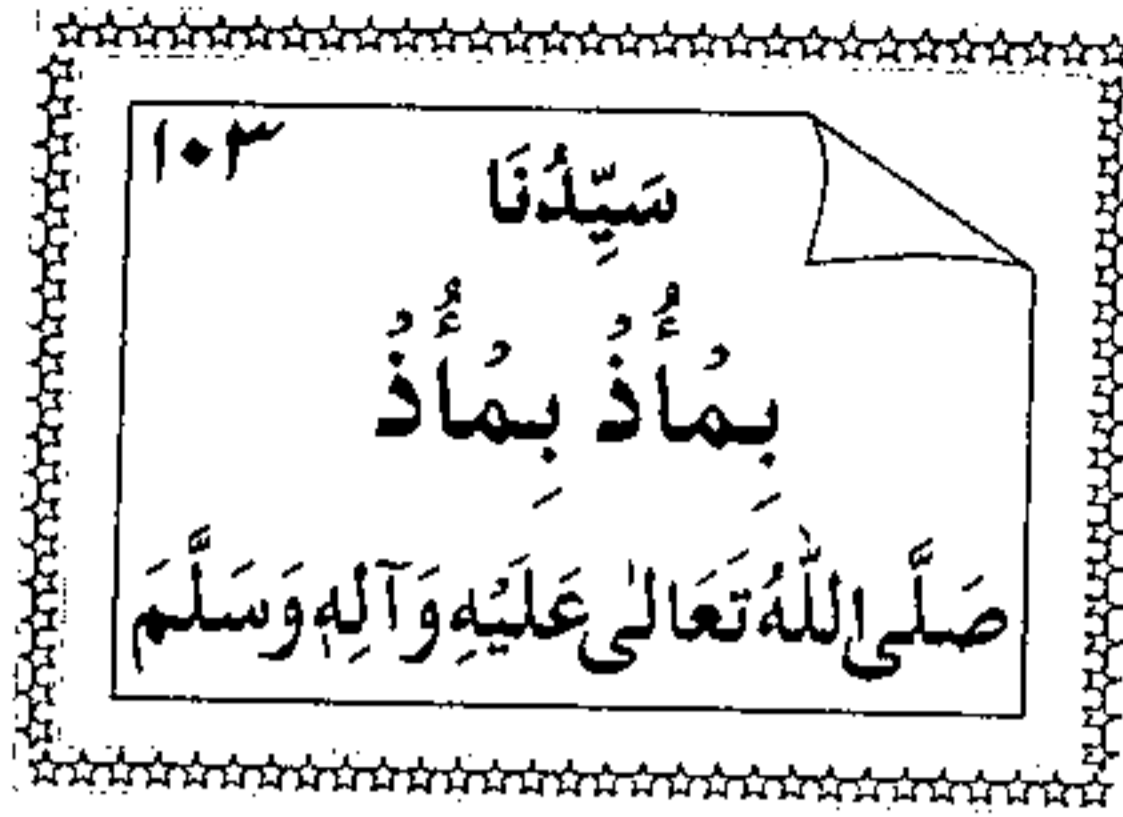 ١٠٣
سَيِّدُنَا
بِمُأَُٔذُ بِمُأَُٔذُ
صَلَّى اللّٰهُ تَعَالٰى عَلَيْهِ وَآلِهٖ وَسَلَّمَ